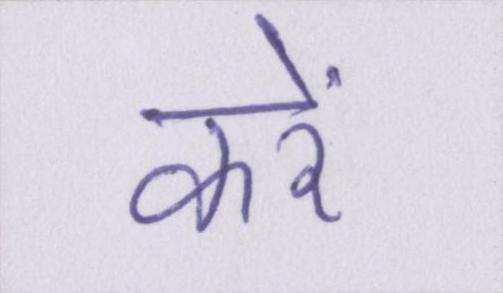 करें